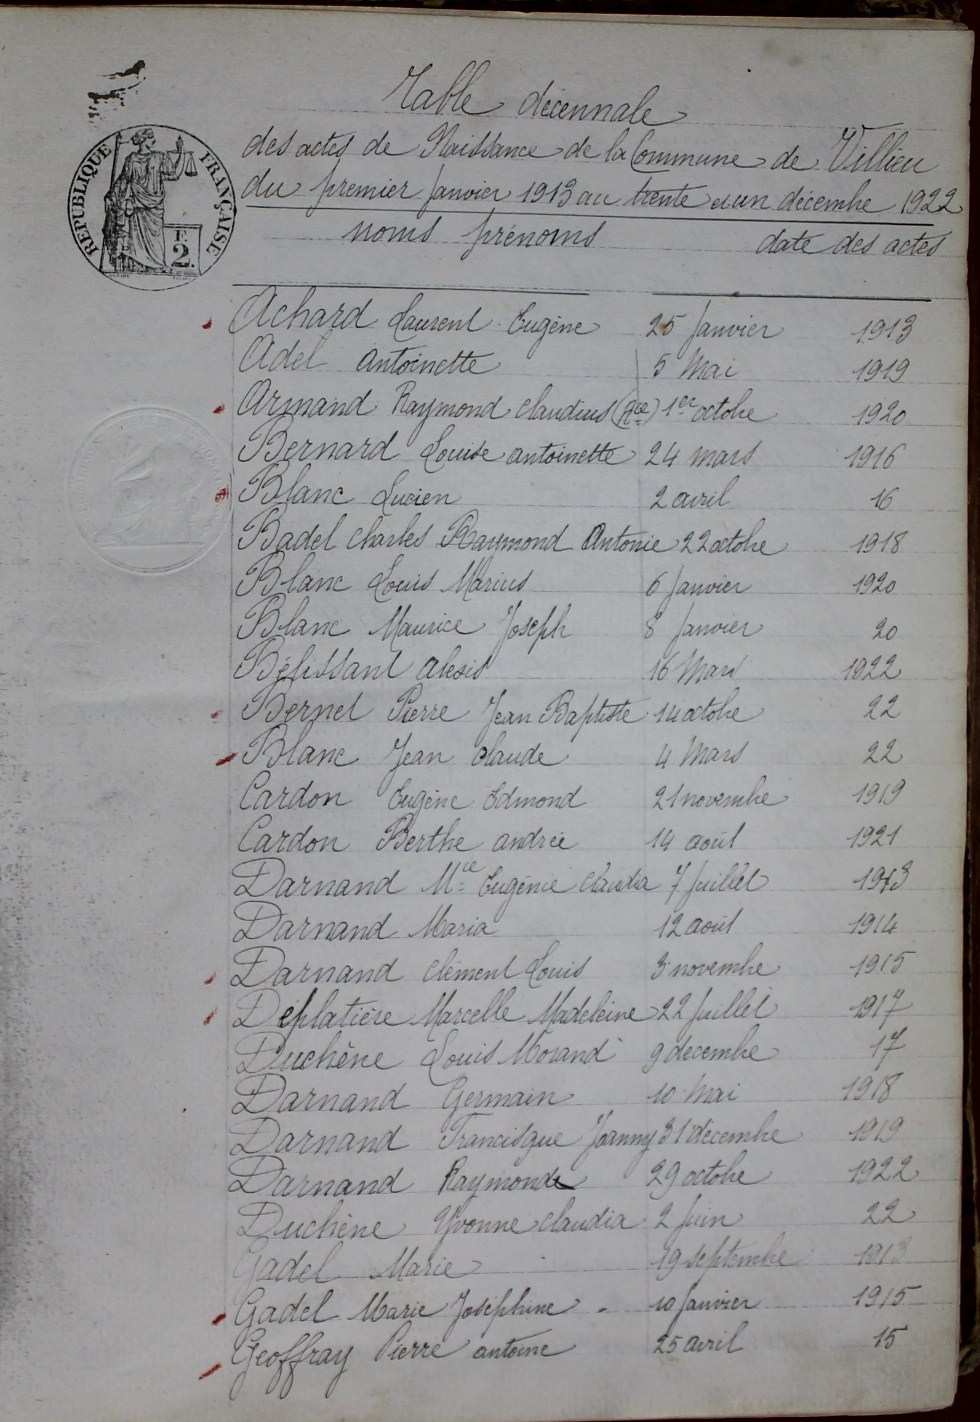 Table décennale
des actes de Naissance de la Commune de Villieu
du premier Janvier 1913 au trente et un décembre 1922
noms prénoms date des actes
RÉPUBLIQUE FRANÇAISE
2
Achard Laurent Eugène 25 Janvier 1913
Adel Antoinette 5 Mai 1919
Armand Raymond Claudius (Rce) 1er octobre 1920
Bernard Louise antoinette 24 mars 1916
Blanc Lucien 2 avril 16
Badel Charles Raymond Antonie 22 octobre 1918
Blanc Louis Marius 6 Janvier 1920
Blanc Maurice Joseph 8 Janvier 20
Bélissant alexis 16 Mars 1922
Bernet Pierre Jean Baptiste 14 octobre 22
Blanc Jean Claude 4 Mars 22
Cardon Eugène Edmond 21 novembre 1919
Cardon Berthe andrée 14 août 1921
Darnand Mie Eugénie Claudia 7 Juillet 1913
Darnand Maria 12 août 1914
Darnand Clément Louis 3 novembre 1915
Déplatière Marcelle Madeleine 22 Juillet 1917
Duchêne Louis Morand 9 décembre 17
Darnand Germain 10 Mai 1918
Darnand Francisque Joanny 31 décembre 1919
Darnand Raymonde 29 octobre 1922
Duchêne Yvonne Claudia 2 Juin 22
Gadel Marie 19 septembre 1913
Gadel Marie Joséphine 10 Janvier 1915
Geoffray Pierre antoine 25 avril 15